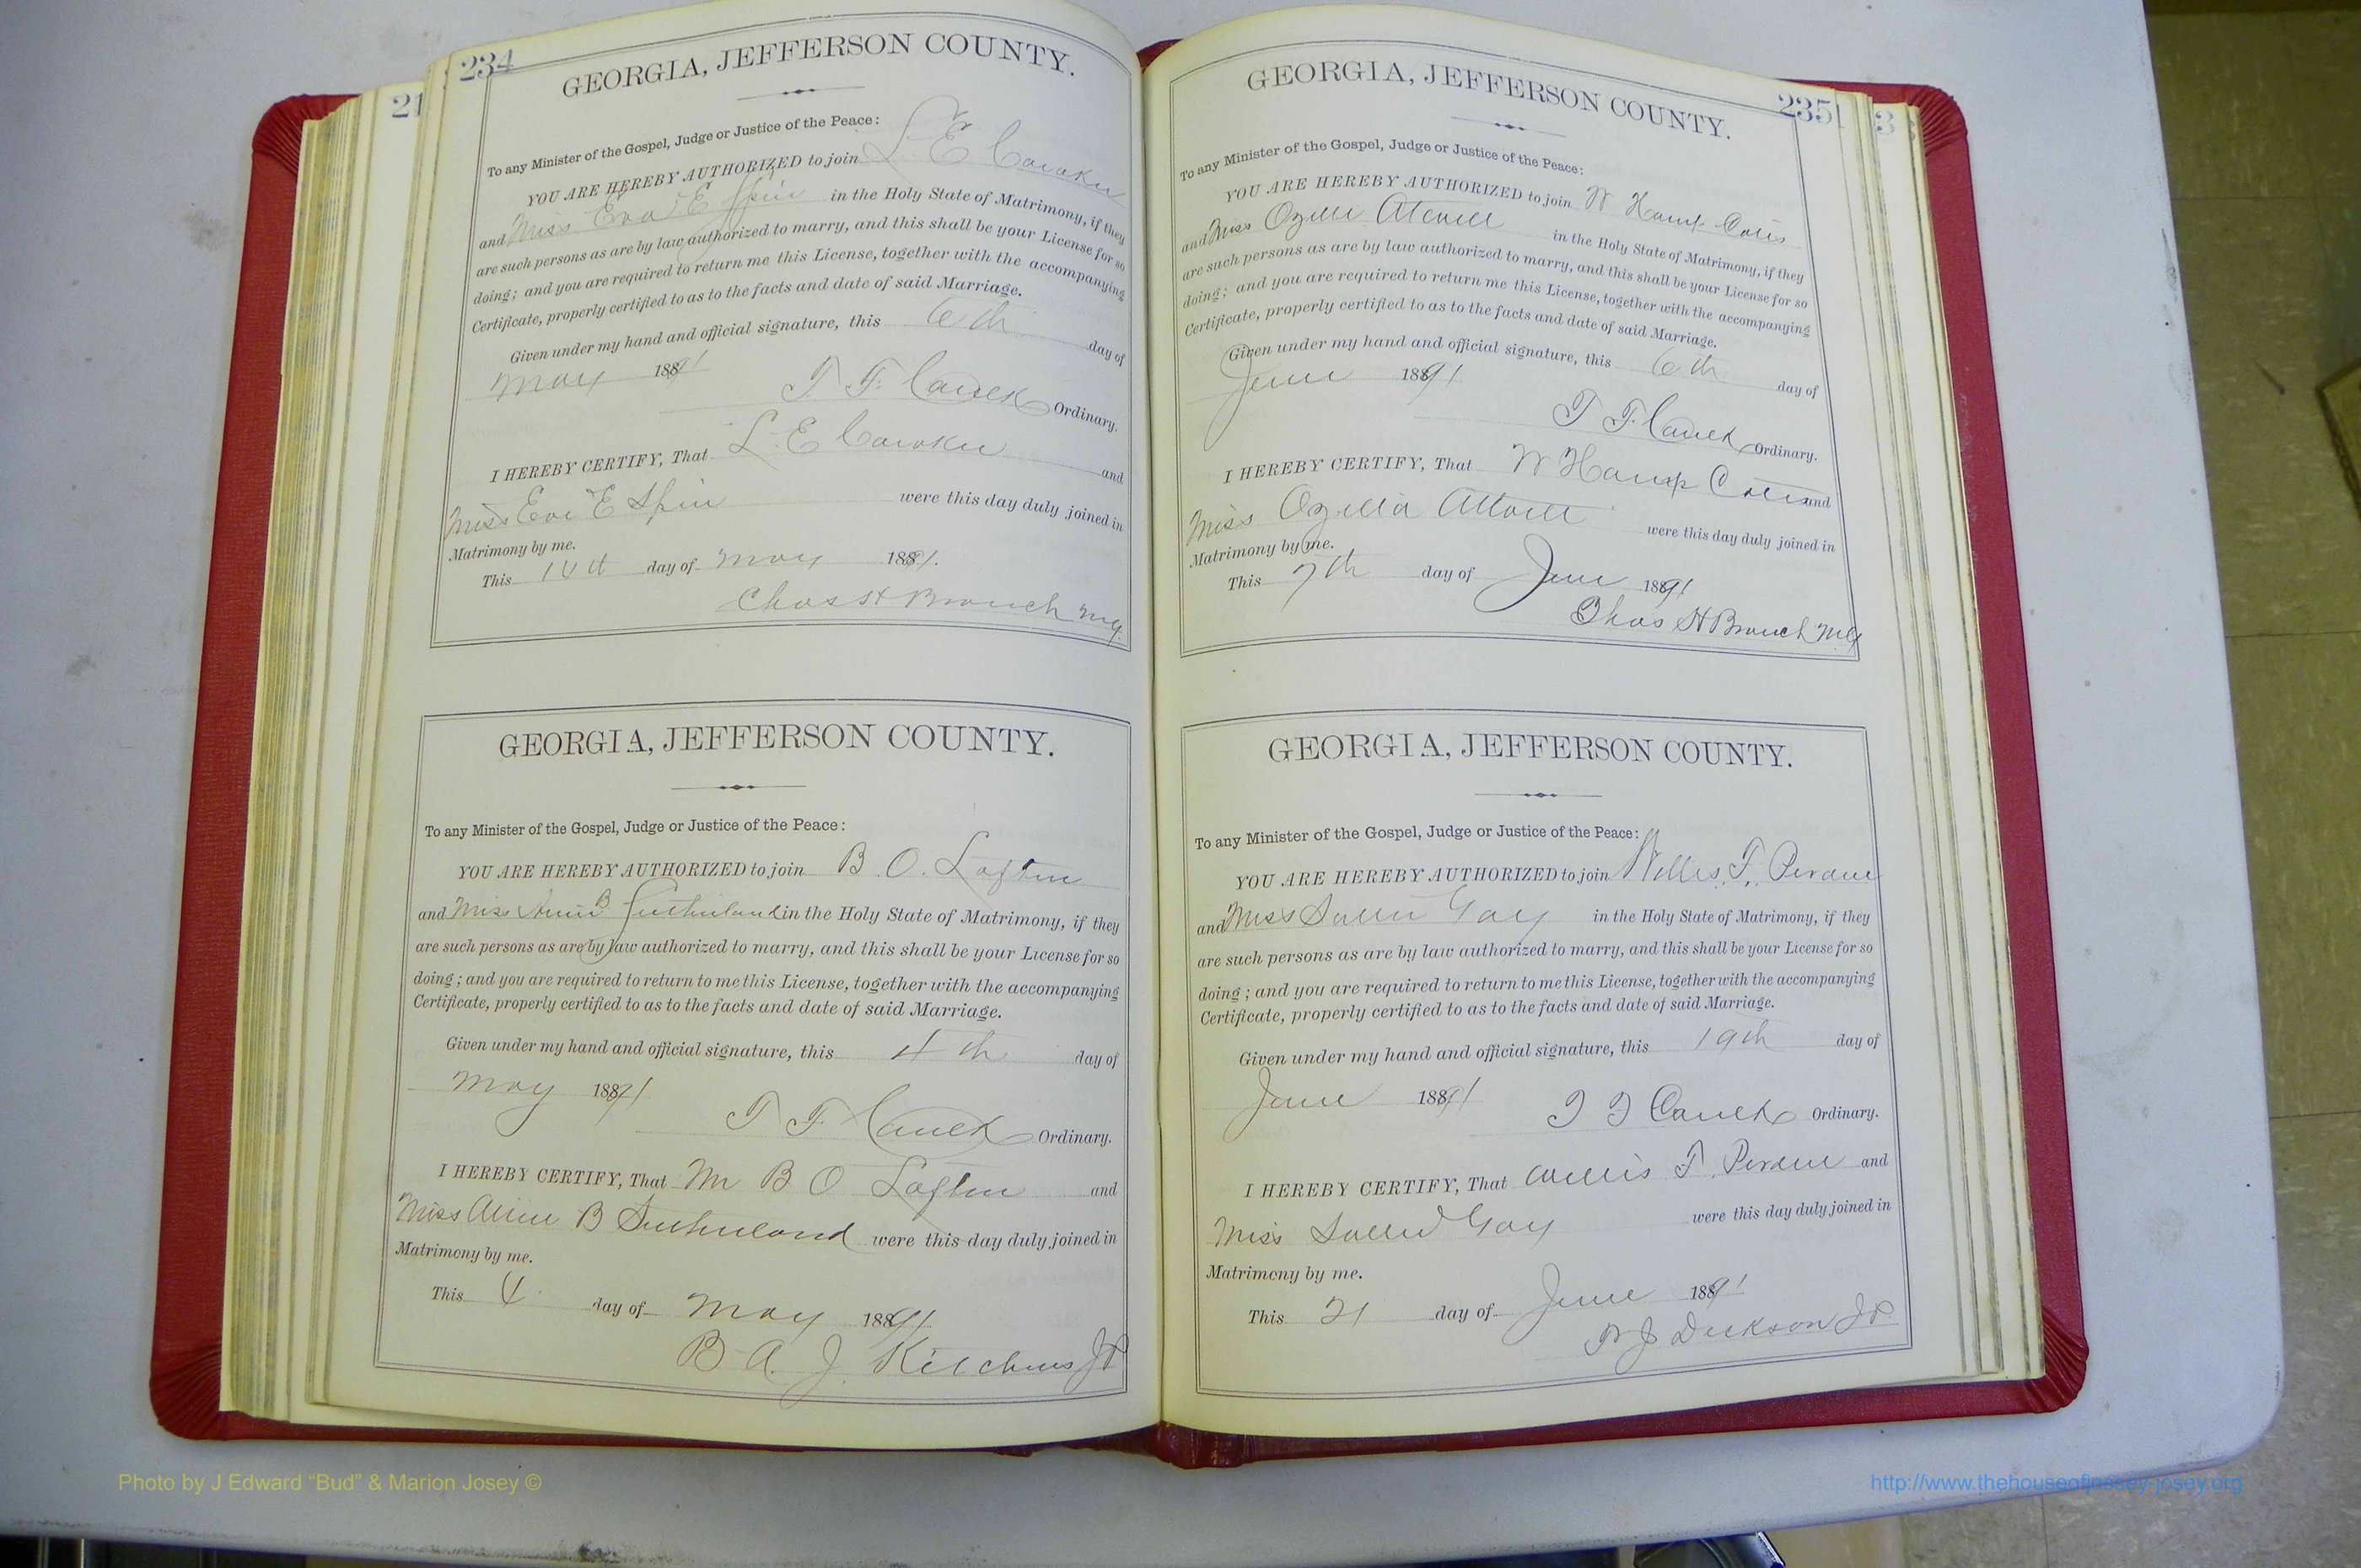 21
234
GEORGIA, JEFFERSON COUNTY.
To any Minister of the Gospel, Judge or Justice of the Peace:
YOU ARE HEREBY AUTHORIZED to join L. E.
and Miss Eva E in the Holy State of Matrimony, if they
are such persons as are by law authorized to marry, and this shall be your License for so
doing; and you are required to return me this License, together with the accompanying
Certificate, properly certified to as to the facts and date of said Marriage.
Given under my hand and official signature, this 6th day of
May 1891
T F Ordinary.
I HEREBY CERTIFY, That L. E and
Miss E were this day duly joined in
Matrimony by me.
This day of May 1891.
Chas H Branch MG
GEORGIA, JEFFERSON COUNTY.
To any Minister of the Gospel, Judge or Justice of the Peace:
YOU ARE HEREBY AUTHORIZED to join B. O. Loftin
and Miss B Sutherland in the Holy State of Matrimony, if they
are such persons as are by law authorized to marry, and this shall be your License for so
doing; and you are required to return to me this License, together with the accompanying
Certificate, properly certified to as to the facts and date of said Marriage.
Given under my hand and official signature, this 4th day of
May 1891
T F Ordinary.
I HEREBY CERTIFY, That Mr B O Loftin and
Miss B Sutherland were this day duly joined in
Matrimony by me.
This 4 day of May 1891
B A. J. JP
235
3
GEORGIA, JEFFERSON COUNTY.
To any Minister of the Gospel, Judge or Justice of the Peace:
YOU ARE HEREBY AUTHORIZED to join W Hamp
and Miss in the Holy State of Matrimony, if they
are such persons as are by law authorized to marry, and this shall be your License for so
doing; and you are required to return me this License, together with the accompanying
Certificate, properly certified to as to the facts and date of said Marriage.
Given under my hand and official signature, this 6th day of
June 1891
T F Ordinary.
I HEREBY CERTIFY, That W Hamp and
Miss Ozella were this day duly joined in
Matrimony by me.
This 7th day of June 1891
Chas H Branch MG
GEORGIA, JEFFERSON COUNTY.
To any Minister of the Gospel, Judge or Justice of the Peace:
YOU ARE HEREBY AUTHORIZED to join Willis F. Perdue
and Miss Sallie Gay in the Holy State of Matrimony, if they
are such persons as are by law authorized to marry, and this shall be your License for so
doing; and you are required to return to me this License, together with the accompanying
Certificate, properly certified to as to the facts and date of said Marriage.
Given under my hand and official signature, this 19th day of
June 1891
T F Ordinary.
I HEREBY CERTIFY, That Willis F. Perdue and
Miss Sallie Gay were this day duly joined in
Matrimony by me.
This 21 day of June 1891
J Dickson JP
Photo by J Edward “Bud” & Marion Josey ©
http://www.thehouseofjossey-josey.org